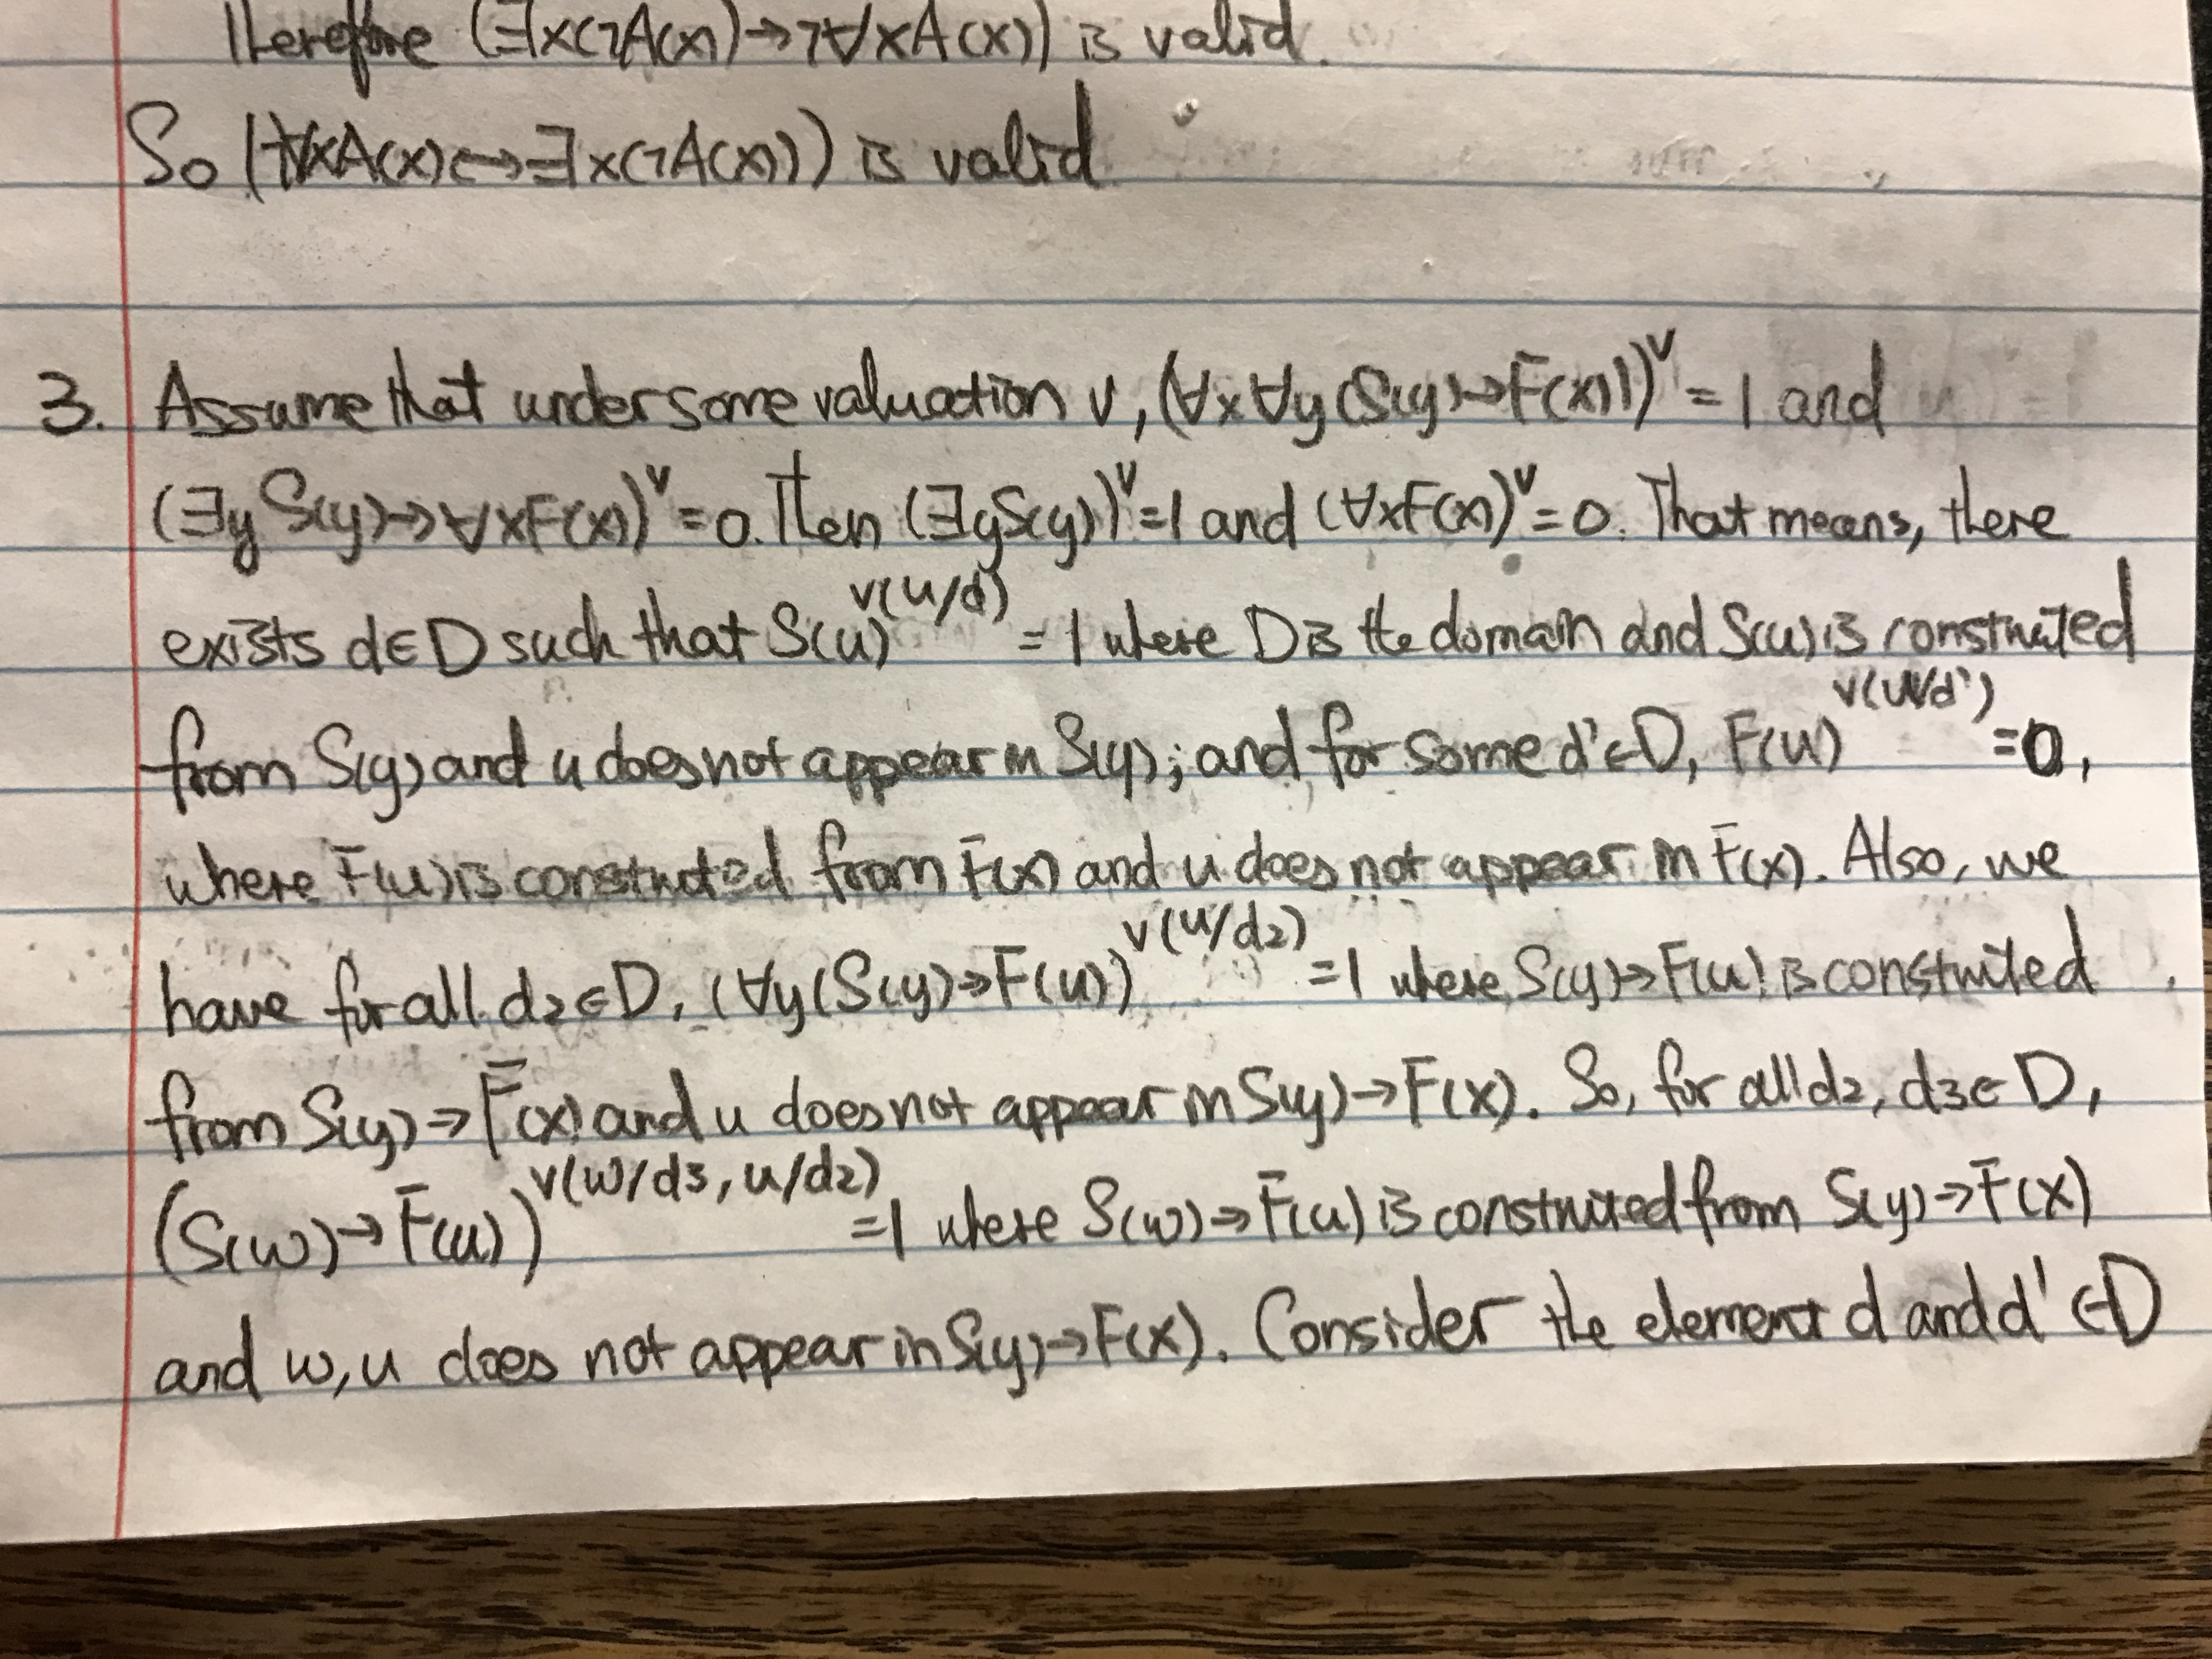 Therefore (∃x(¬A(x)→¬∀xA(x)) is valid.
So (¬∀xA(x)↔∃x(¬A(x))) is valid
3. Assume that under some valuation v, (∀x∀y(S(y)→F(x)))^v = 1 and
(∃y S(y)→∀xF(x))^v = 0. Then (∃yS(y))^v = 1 and (∀xF(x))^v = 0. That means, there
exists d∈D such that S(u)^v(u/d) = 1 where D is the domain and S(u) is constructed
from S(y) and u does not appear in S(y); and for some d'∈D, F(u)^v(u/d') = 0,
where F(u) is constructed from F(x) and u does not appear in F(x). Also, we
have for all d2∈D, (∀y(S(y)→F(u))^v(u/d2) = 1 where S(y)→F(u) is constructed
from S(y)→F(x) and u does not appear in S(y)→F(x). So, for all d2, d3∈D,
(S(w)→F(u))^v(w/d3, u/d2) = 1 where S(w)→F(u) is constructed from S(y)→F(x)
and w, u does not appear in S(y)→F(x). Consider the element d and d' ∈D